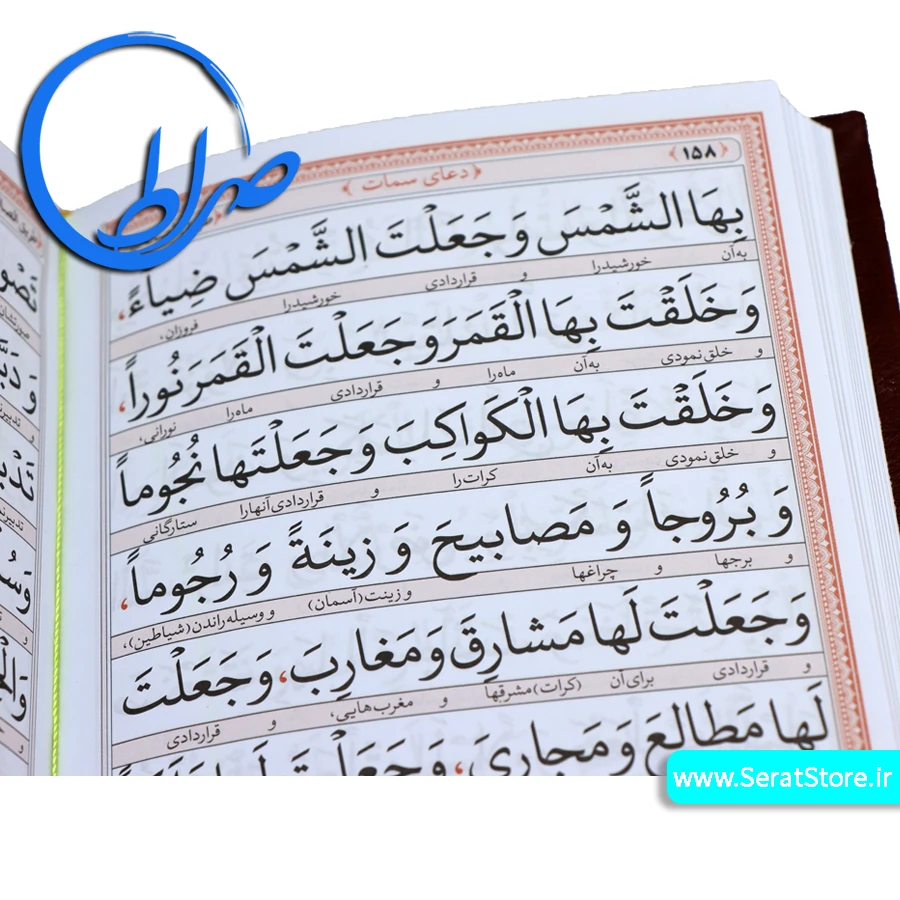 صراط
﴿۱۵۸﴾
﴿ دعای سمات ﴾
بِهَا الشَّمْسَ وَجَعَلْتَ الشَّمْسَ ضِياءً،
به‌آن خورشیدرا و قراردادی خورشیدرا فروزان،
وَخَلَقْتَ بِهَا الْقَمَرَ وَجَعَلْتَ الْقَمَرَ نُوراً،
و خلق‌نمودی به‌آن ماه‌را و قراردادی ماه‌را نورانی،
وَخَلَقْتَ بِهَا الْكَواكِبَ وَجَعَلْتَها نُجُوماً
و خلق‌نمودی به‌آن کرات‌را و قراردادی‌آنهارا ستارگانی
وَ بُرُوجاً وَ مَصابيحَ وَ زينَةً وَ رُجُوماً،
و برجها و چراغها و زینت(آسمان) و وسیله‌راندن(شیاطین)،
وَجَعَلْتَ لَها مَشارِقَ وَمَغارِبَ، وَجَعَلْتَ
و قراردادی برای‌آن (کرات)مشرقها و مغرب‌هایی، و قراردادی
لَها مَطالِعَ وَمَجارِيَ، وَجَعَلْتَ
www.SeratStore.ir